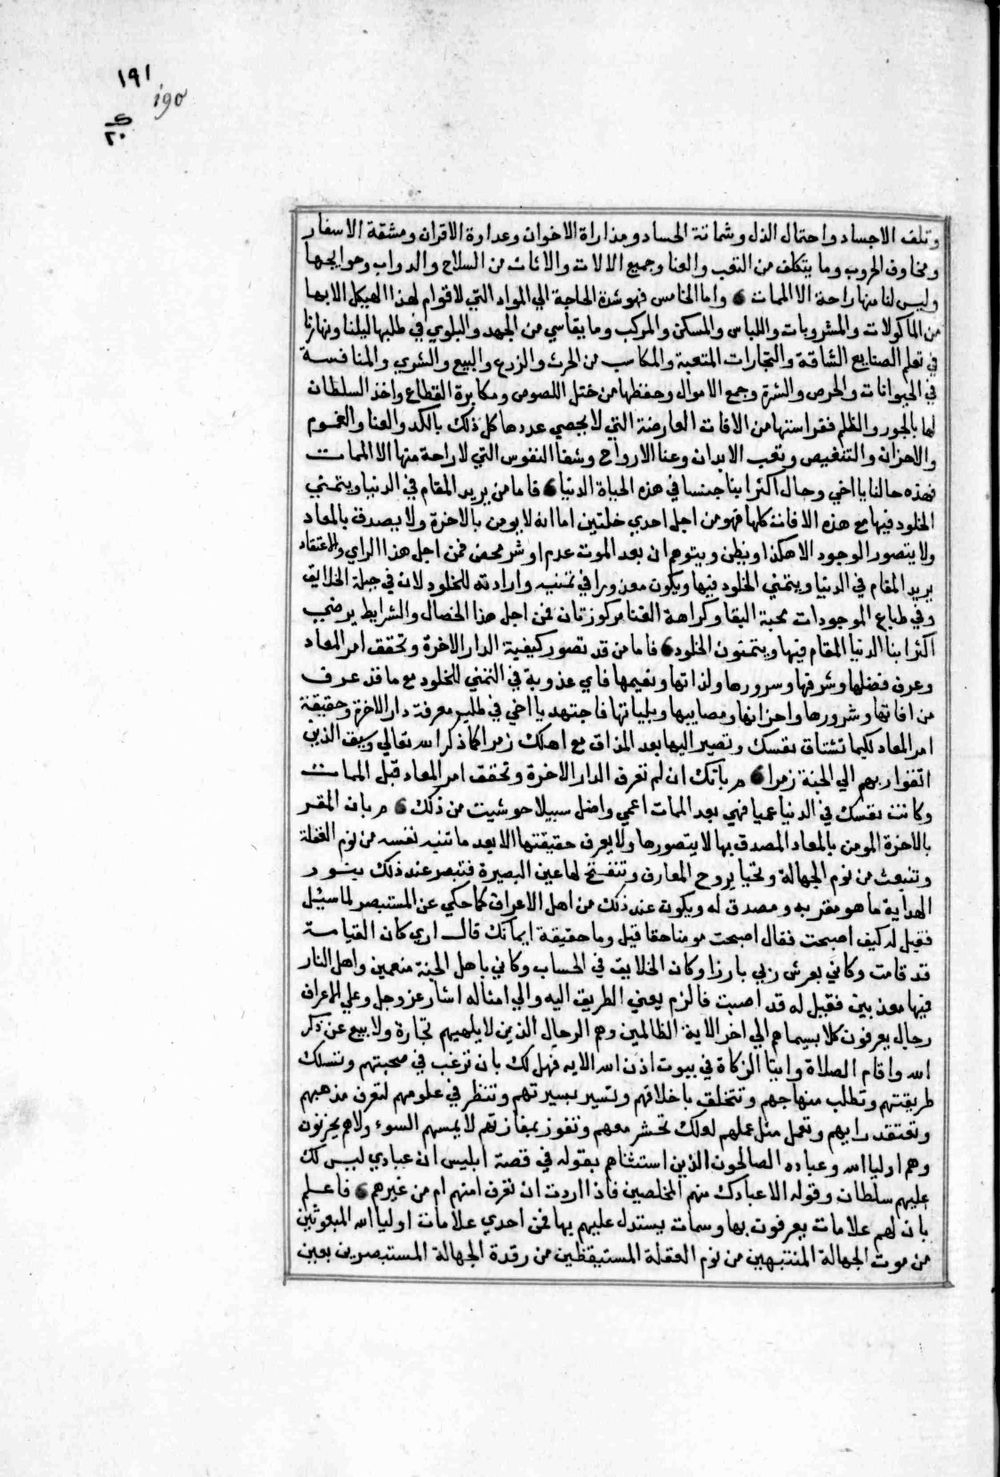 ١٩١
190
٢٠
وتلف الاجساد واحتمال الذل وشماتة الحساد ومداراة الاخوان وعداوة الاقران ومشقة الاسفار
ومخاوف الحروب وما يتكلف من التعب والعنا وجميع الالات والاثاث من السلاح والدواب وحوايجها
وليس لنا منها راحة الا الممات واما الخامس فهو شدة الحاجة الي المواد التي لا قوام لهذا الهيكل الا بها
من الماكولات والمشروبات واللباس والمسكن والمركب وما يقاسي من الجهد والبلوي في طلبها ليلنا ونهارنا
في تعلم الصنايع الشاقة والتجارات المتعبة والمكاسب من الحرث والزرع والبيع والشري والمنافسة
في الحيوانات والحرص والشرة وجمع الاموال وحفظها من ختل اللصوص ومكابرة القطاع واخذ السلطان
لها بالجور والظلم فقراستها من الافات العارضة التي لا يحصي عددها كل ذلك بالكد والعنا والغموم
والاحزان والتنغيص وتعب الابدان وعنا الارواح وشقا النفوس التي لا راحة منها الا الممات
فهذه حالنا يا اخي وحال اكثر ابنا جنسنا في هذه الحياة الدنيا فاما من يريد المقام في الدنيا ويتمني
الخلود فيها مع هذه الافات كلها فهو من اجل احدي خلتين اما انه لا يومن بالاخرة ولا يصدق بالمعاد
ولا يتصور الوجود الا هكذا ويظن ويتوهم ان بعد الموت عدم او شر محض فمن اجل هذا الراي والاعتقاد
يريد المقام في الدنيا ويتمني الخلود فيها ويكون معذورا في تمنيه وارادته للخلود لان في جبلة الخلايق
وفي طباع الموجودات محبة البقا وكراهة الفنا مركوزتان فمن اجل هذا الخصال والشرايط يرضي
اكثر ابنا الدنيا المقام فيها ويتمنون الخلود فاما من قد تصور كيفية الدار الاخرة وتحقق امر المعاد
وعرف فضلها وشرفها وسرورها ولذاتها ونعيمها فاي عذوبة في التمني للخلود مع ما قد عرف
من افاتها وشرورها واحزانها ومصايبها وبلياتها فاجتهد يا اخي في طلب معرفة دار الاخرة وحقيقة
امر المعاد لكيما تشتاق نفسك وتصير اليها بعد المذاق مع اهلك زمرا كما ذكر الله تعالي وسيق الذين
اتقوا ربهم الي الجنة زمرا بانك ان لم تعرف الدار الاخرة وتحقق امر المعاد قبل الممات
وكانت نفسك في الدنيا عميا فهي بعد الممات اعمي واضل سبيلا حوشيت من ذلك بان المقر
بالاخرة المومن بالمعاد المصدق بها لا يتصورها ولا يعرف حقيقتها الا بعد ما تنبه نفسه من نوم الغفلة
وتنبعث من نوم الجهالة وتحيا بروح المعارف وتنفتح لها عين البصيرة فتبصر عند ذلك بنور
الهداية ما هو مقر به ومصدق له ويكون عند ذلك من اهل الاعراف كما حكي عن المستبصر لما سئل
فقيل له كيف اصبحت فقال اصبحت مومنا حقا قيل وما حقيقة ايمانك قال اري كان القيامة
قد قامت وكاني بعرش ربي بارزا وكان الخلايق في الحساب وكاني باهل الجنة منعمين واهل النار
فيها معذبين فقيل له قد اصبت فالزم يعني الطريق اليه والي امثاله اشار عز وجل وعلي الاعراف
رجال يعرفون كلا بسيماهم الي اخر الاية الظالمين وهم الرجال الذين لا يلهيهم تجارة ولا بيع عن ذكر
الله واقام الصلاة وايتا الزكاة في بيوت اذن الله الايه فهل لك بان ترغب في صحبتهم وتسلك
طريقتهم وتطلب منهاجهم وتتخلق باخلاقهم وتسير بسيرتهم وتنظر في علومهم لتعرف مذهبهم
وتعتقد رايهم وتعمل مثل عملهم لعلك تحشر معهم وتفوز بمفازتهم لا يمسهم السوء ولا هم يحزنون
وهم اوليا الله وعباده الصالحون الذين استثناهم بقوله في قصة ابليس ان عبادي ليس لك
عليهم سلطان وقوله الا عبادك منهم المخلصين فاذا اردت ان تعرف امنهم ام من غيرهم فاعلم
بان لهم علامات يعرفون بها وسمات يستدل عليهم بها فمن احدي علامات اوليا الله المبعوثين
من موت الجهالة المنتبهين من نوم الغفلة المستيقظين من رقدة الجهالة المستبصرين بعين